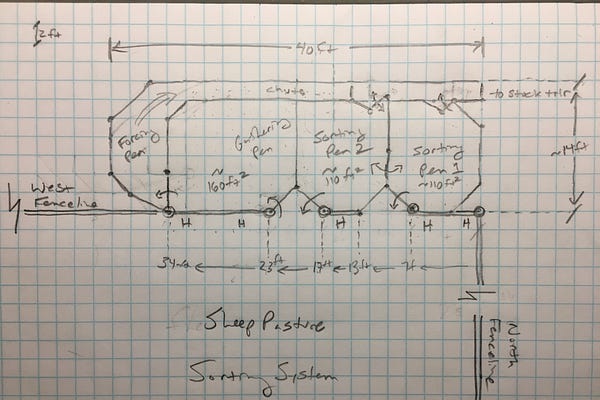 2ft
40ft
chute
to stock trlr
Forcing
Pen
Gathering
Pen
~
160ft²
Sorting
Pen 2
~110ft²
Sorting
Pen 1
~110ft²
~14ft
West
Fenceline
H H H H
34ft 23ft 17ft 13ft 7ft
Sheep Pasture
Sorting System
North
Fenceline